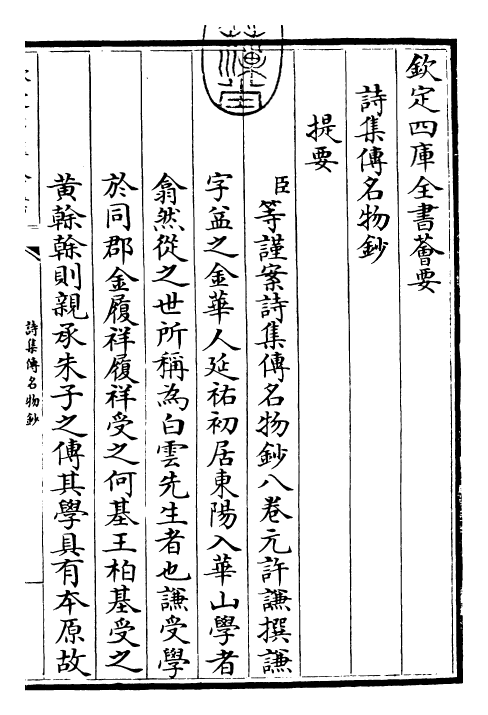 欽定四庫全書薈要
詩集傳名物鈔
提要
臣等謹案詩集傳名物鈔八卷元許謙撰謙
字益之金華人延祐初居東陽八華山學者
翕然從之世所稱為白雲先生者也謙受學
於同郡金履祥履祥受之何基王柏基受之
黄榦榦則親承朱子之傳其學具有本原故
詩集傳名物鈔